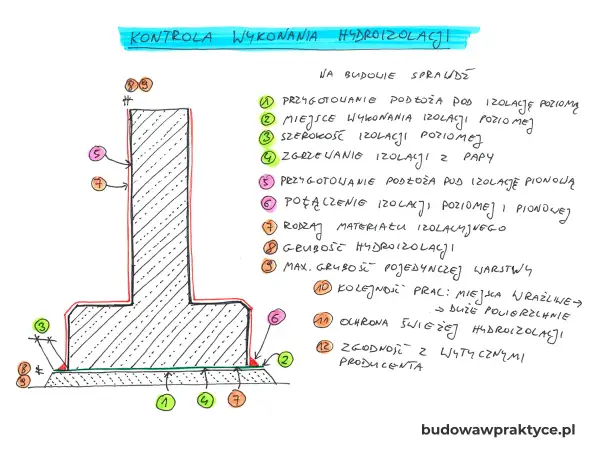 KONTROLA WYKONANIA HYDROIZOLACJI
NA BUDOWIE SPRAWDŹ
1 PRZYGOTOWANIE PODŁOŻA POD IZOLACJĘ POZIOMĄ
2 MIEJSCE WYKONANIA IZOLACJI POZIOMEJ
3 SZEROKOŚĆ IZOLACJI POZIOMEJ
4 ZGRZEWANIE IZOLACJI Z PAPY
5 PRZYGOTOWANIE PODŁOŻA POD IZOLACJĘ PIONOWĄ
6 POŁĄCZENIE IZOLACJI POZIOMEJ I PIONOWEJ
7 RODZAJ MATERIAŁU IZOLACYJNEGO
8 GRUBOŚĆ HYDROIZOLACJI
9 MAX. GRUBOŚĆ POJEDYNCZEJ WARSTWY
10 KOLEJNOŚĆ PRAC: MIEJSKA WRAŻLIWE →
→ DUŻE POWIERZCHNIE
11 OCHRONA ŚWIEŻEJ HYDROIZOLACJI
12 ZGODNOŚĆ Z WYTYCZNYMI
PRODUCENTA
8 9
5
7
3
6
2
8
9
1 4 7
budowawpraktyce.pl